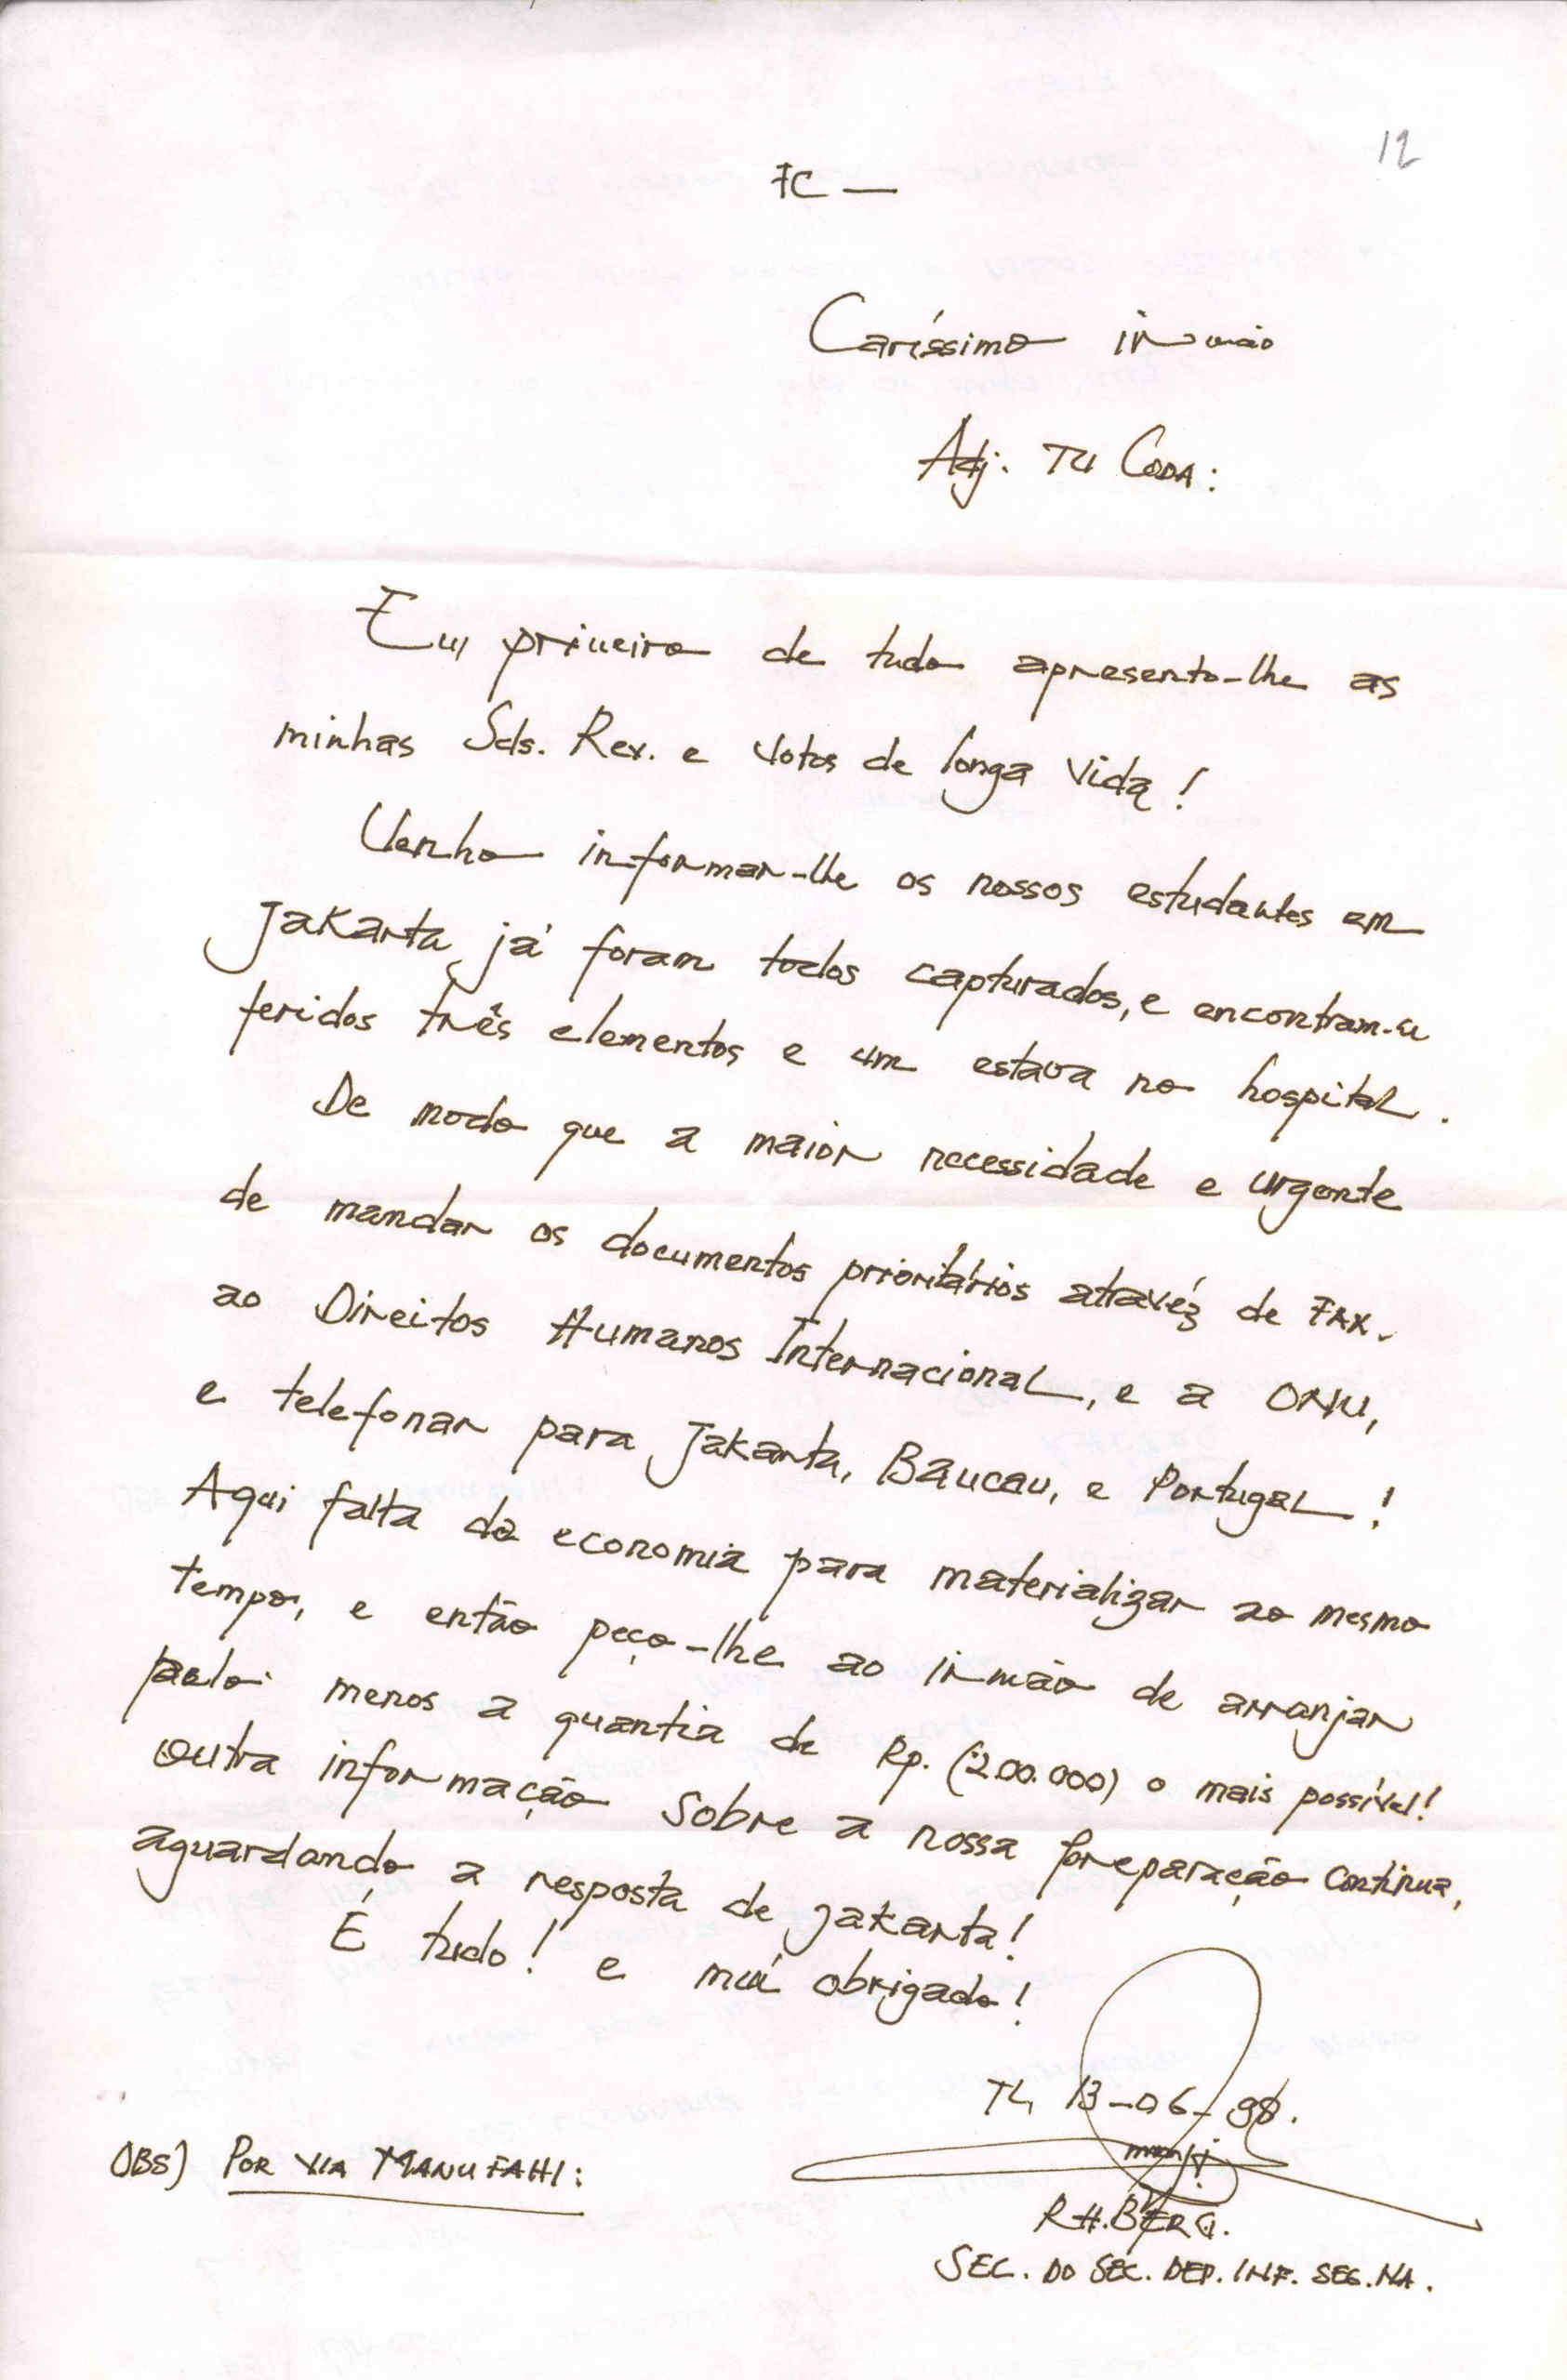 12
FC —
Caríssimo irmão
Adj. TU CODA:
Em primeiro de tudo apresento-lhe as
minhas Sds. Rev. e votos de longa vida!
Venho informar-lhe os nossos estudantes em
Jakarta, já foram todos capturados, e encontram-se
feridos três elementos e um estava no hospital.
De modo que a maior necessidade e urgente
de mandar os documentos prioritários atravéz de FAX.
ao Direitos Humanos Internacional, e a ONU,
e telefonar para Jakarta, Baucau, e Portugal!
Aqui falta da economia para materializar ao mesmo
tempo, e então peço-lhe ao irmão de arranjar
paelo menos a quantia de Rp. (200.000) o mais possível!
Outra informação sobre a nossa preparação continua,
aguardando a resposta de Jakarta!
É tudo! e obrigado!
TL, 13-06-98.
OBS) POR VIA MANUFAHI:
R.H.BERG.
SEC. DO SEC. DEP. INF. SEG. NA.